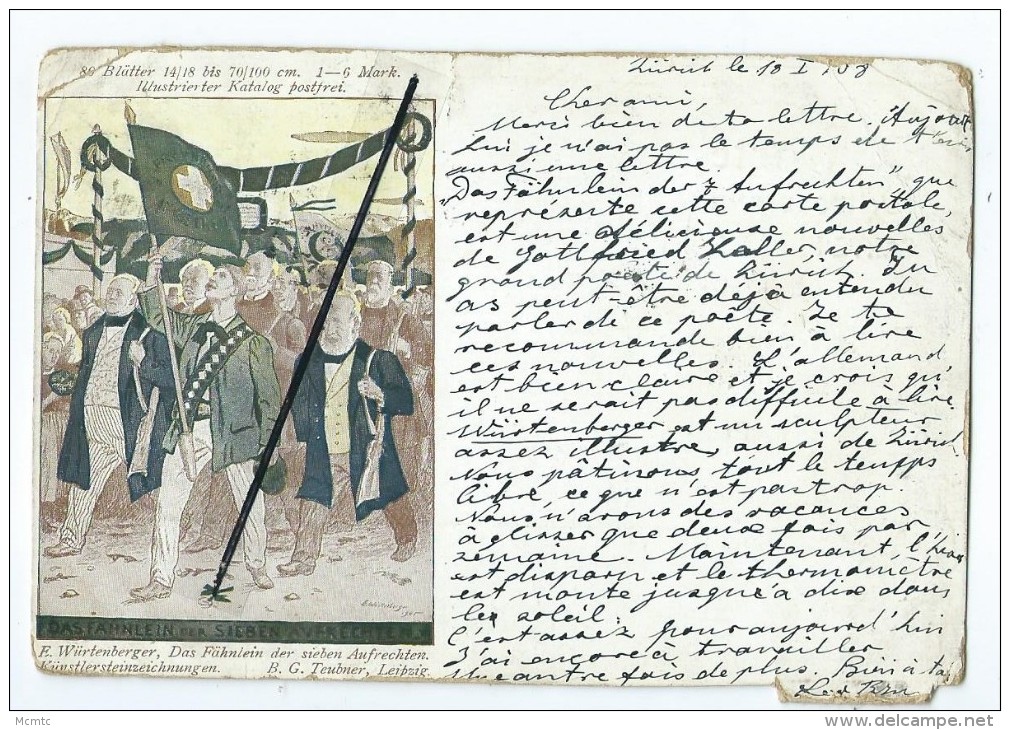 80 Blätter 14/18 bis 70/100 cm. 1—6 Mark.
Illustrierter Katalog postfrei.
DAS FÄHNLEIN DER SIEBEN AUFRECHTEN
E. Würtenberger, Das Fähnlein der sieben Aufrechten.
Künstlersteinzeichnungen. B. G. Teubner, Leipzig
Zürich le 18 I 08
Cher ami,
Merci bien de ta lettre. Aujourd'
hui je n'ai pas le temps de
aussi une lettre.
"Das Fähnlein der 7 Aufrechten" que
représente cette carte postale,
est une délicieuse nouvelles
de Gottfried Keller, notre
grand poète de Zürich. Tu
as peut-être déjà entendu
parler de ce poète. Je te
recommande bien à lire
ces nouvelles. L'allemand
est bien claire et je crois qu'
il ne serait pas difficile à lire.
Würtenberger est un sculpteur
assez illustre, aussi de Zürich.
Nous patinons tout le temps
libre, ce que n'est pas trop.
Nous n'avons des vacances
à glisser que deux fois par
semaine. Maintenant, l'hiver
est disparu et le thermomètre
est monté jusque à dixe dans
le soleil.
C'est assez pour aujourd'hui
J'ai encore à travailler
Une antre fois de plus. Bien à toi
Mcmtc
© www.delcampe.net